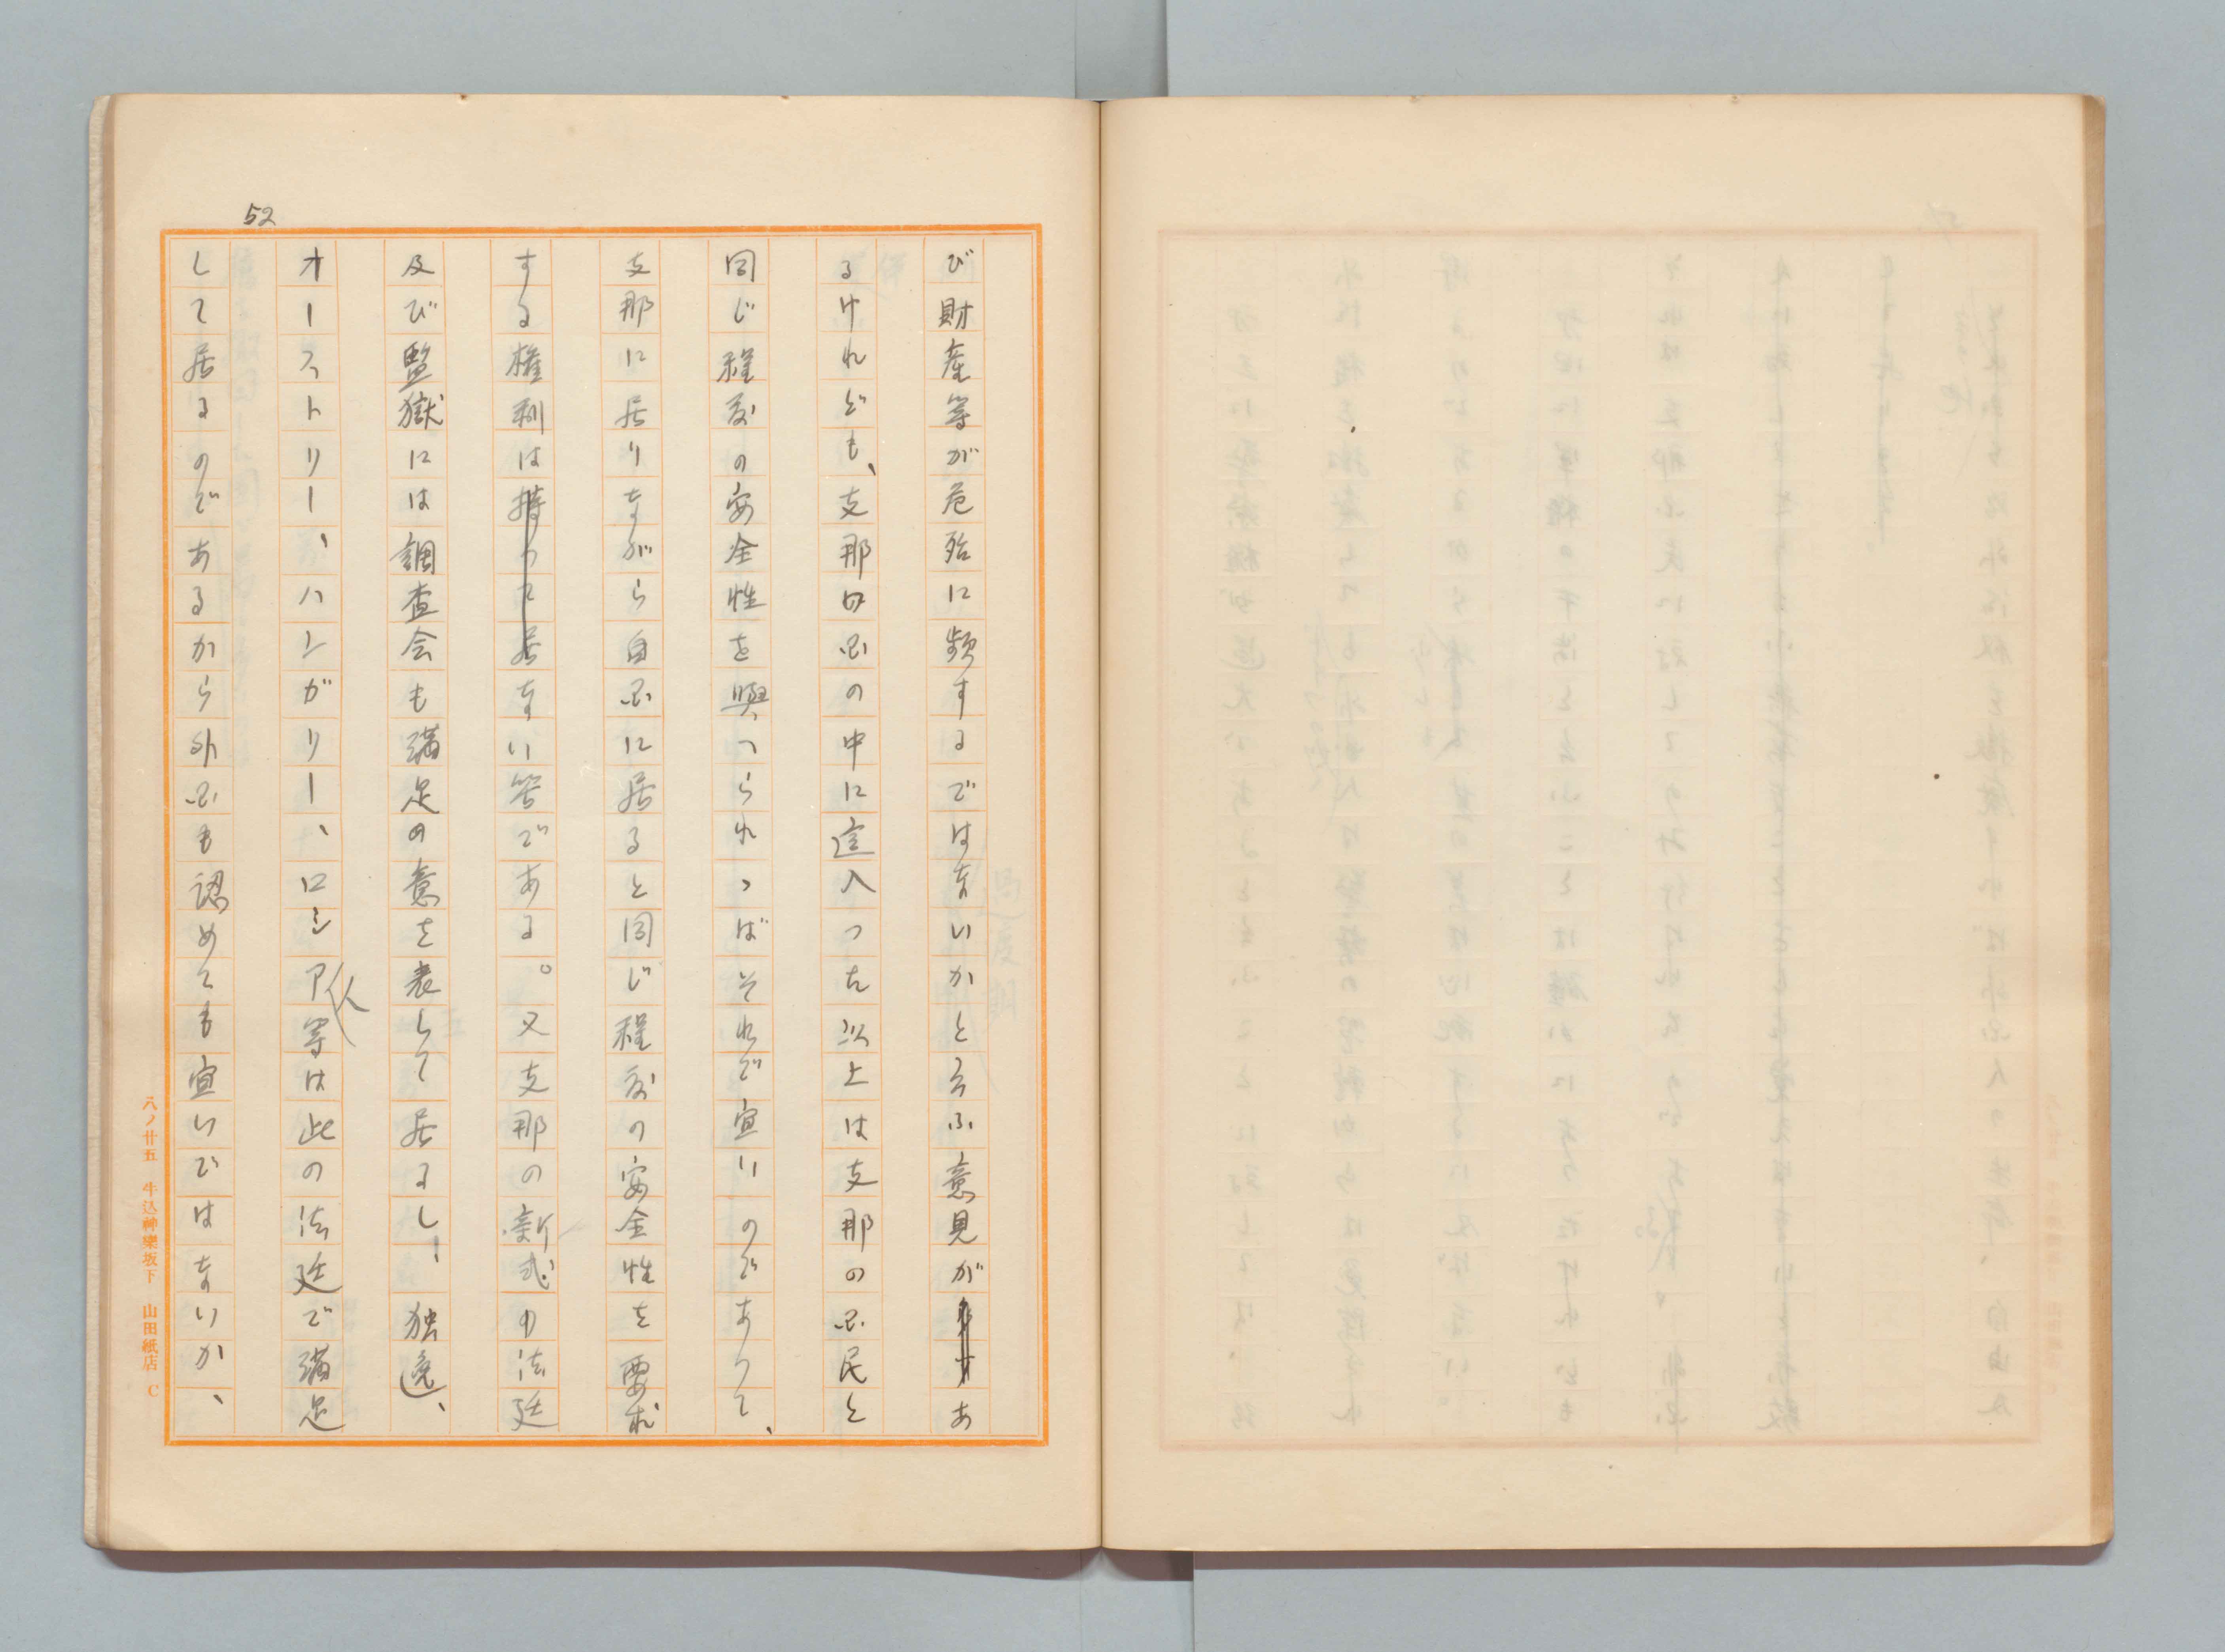 52
び財産等が危殆に頻するではないかと云ふ意見があ
るけれども、支那四国の中に這入つた以上は支那の国民と
同じ程度の安全性を与へられゝばそれで宜いのであつて、
支那に居りながら自国に居ると同じ程度の安全性を要求
する権利は持つて居ない筈である。又支那の新式の法廷
及び監獄には調査会も満足の意を表して居るし、独逸、
オーストリー、ハンガリー、ロシア人等は此の法廷で満足
して居るのであるから外国も認めても宜いではないか、
八ノ廿五 牛込神樂坂下 山田紙店 C